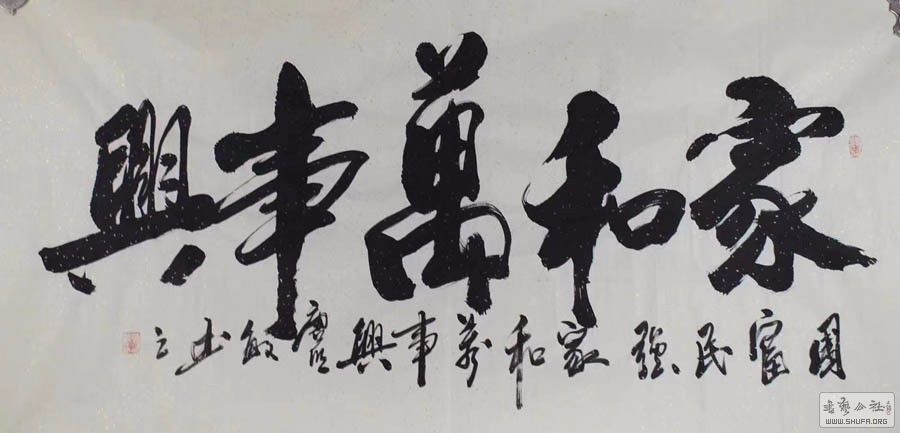 家和萬事興
國富民強家和萬事興
書藝公社
WWW.SHUFA.ORG